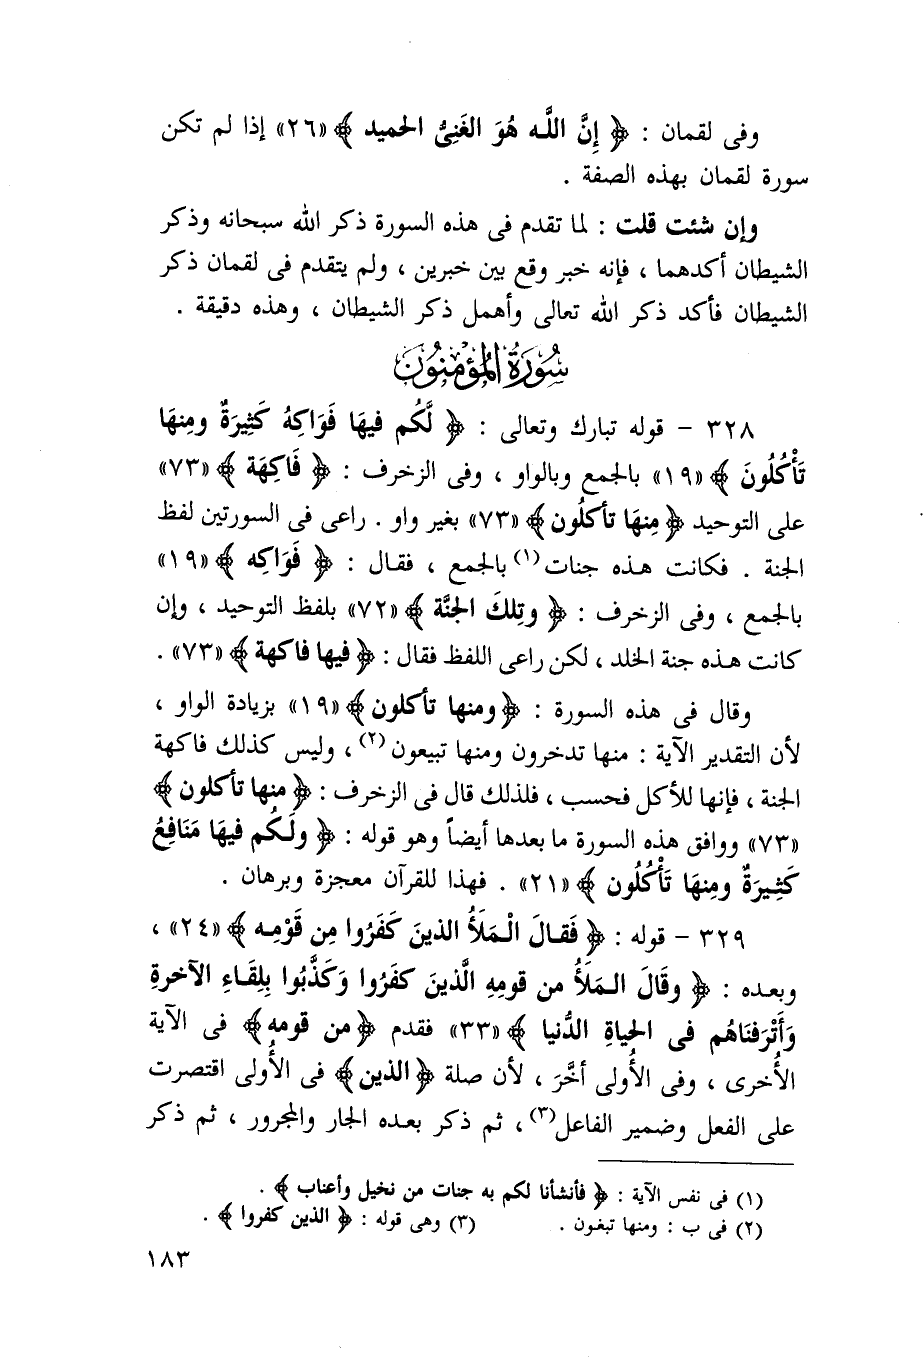 وفى لقمان : ﴿ إِنَّ اللَّه هُوَ الغَنِىُّ الحميد ﴾ «٢٦» إذا لم تكن
سورة لقمان بهذه الصفة .
وإن شئت قلت : لما تقدم فى هذه السورة ذكر الله سبحانه وذكر
الشيطان أكدهما ، فإنه خبر وقع بين خبرين ، ولم يتقدم فى لقمان ذكر
الشيطان فأكد ذكر الله تعالى وأهمل ذكر الشيطان ، وهذه دقيقة .
سُورَةُ المُؤمنُونَ
٣٢٨ – قوله تبارك وتعالى : ﴿ لَّكُم فيهَا فَوَاكِهُ كَثِيرَةٌ ومِنهَا
تَأْكُلُونَ ﴾ «١٩» بالجمع وبالواو ، وفى الزخرف : ﴿ فَاكِهَة ﴾ «٧٣»
على التوحيد ﴿ مِنهَا تأكلُون ﴾ «٧٣» بغير واو . راعى فى السورتين لفظ
الجنة . فكانت هذه جنات(١) بالجمع ، فقال : ﴿ فَوَاكِه ﴾ «١٩»
بالجمع ، وفى الزخرف : ﴿ وتِلكَ الجنَّة ﴾ «٧٢» بلفظ التوحيد ، وإن
كانت هذه جنة الخلد ، لكن راعى اللفظ فقال : ﴿ فيها فاكهة ﴾ «٧٣» .
وقال فى هذه السورة : ﴿ ومنها تأكلون ﴾ «١٩» بزيادة الواو ،
لأن التقدير الآية : منها تدخرون ومنها تبيعون(٢) ، وليس كذلك فاكهة
الجنة ، فإنها للأكل فحسب ، فلذلك قال فى الزخرف : ﴿ منها تأكلون ﴾
«٧٣» ووافق هذه السورة ما بعدها أيضاً وهو قوله : ﴿ ولَكُم فيهَا مَنَافِعُ
كَثِيرَةٌ ومِنهَا تَأْكُلُون ﴾ «٢١» . فهذا للقرآن معجزة وبرهان .
٣٢٩ – قوله : ﴿ فَقالَ الْمَلَأُ الذينَ كَفَرُوا مِن قَوْمِه ﴾ «٢٤» ،
وبعده : ﴿ وقَالَ المَلَأُ من قومِهِ الَّذينَ كفَرُوا وَكَذَّبُوا بِلِقَاءِ الآخرةِ
وَأَتْرَفنَاهُم فى الحياةِ الدُّنيا ﴾ «٣٣» فقدم ﴿ من قومه ﴾ فى الآية
الأُخرى ، وفى الأُولى أخَّرَ ، لأن صلة ﴿ الذين ﴾ فى الأُولى اقتصرت
على الفعل وضمير الفاعل(٣) ، ثم ذكر بعده الجار والمجرور ، ثم ذكر
(١) فى نفس الآية : ﴿ فأنشأنا لكم به جنات من نخيل وأعناب ﴾ .
(٢) فى ب : ومنها تبغون . (٣) وهى قوله : ﴿ الذين كفروا ﴾ .
١٨٣